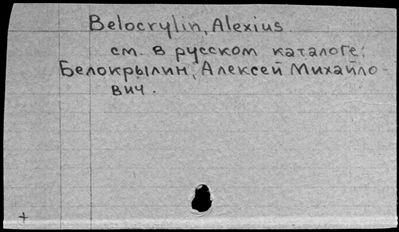 Belocrylin, Alexius
см. в русском каталоге:
Белокрылин, Алексей Михайло-
вич.